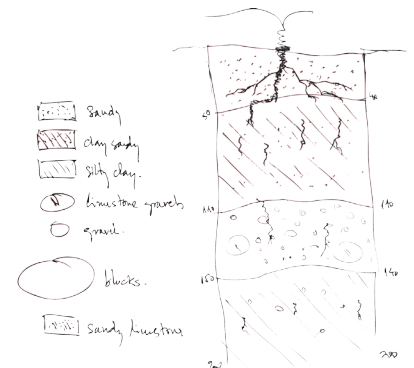 sandy
clay sandy
silty clay.
limestone gravels
gravel.
blocks.
sandy limestone
40
110
110
150
200